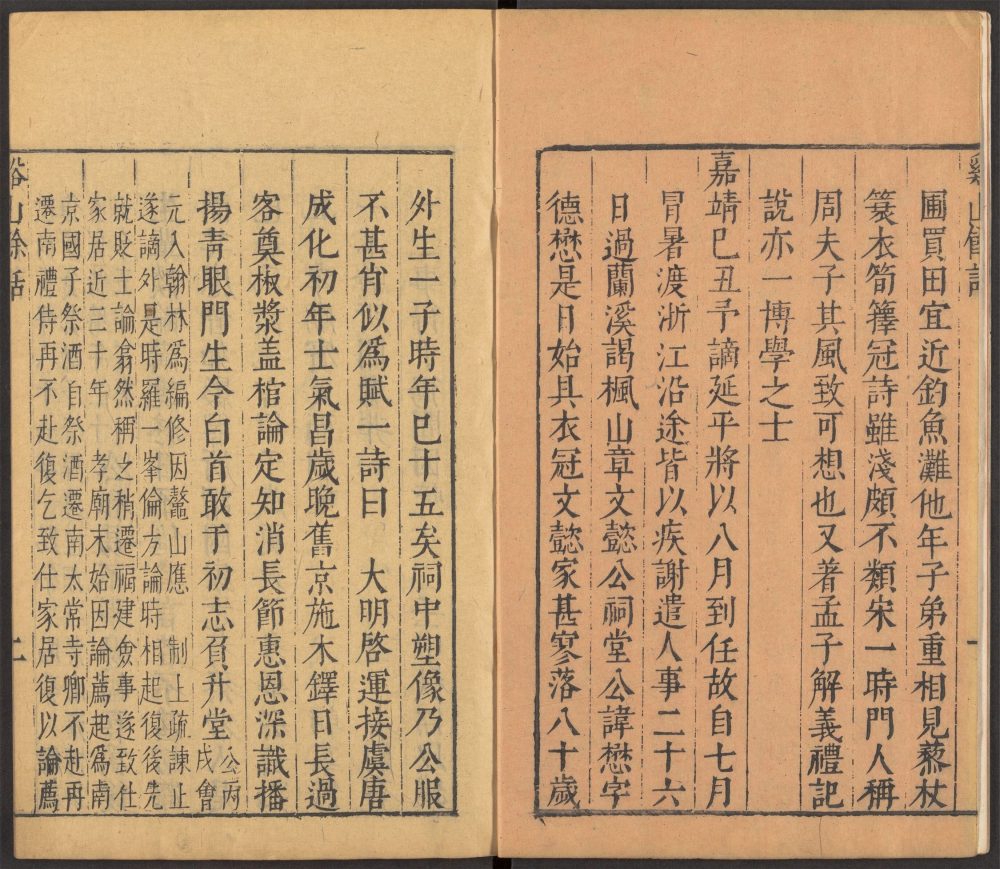 圃買田宜近釣魚灘他年子弟重相見藜杖
簑衣筍籜冠詩雖淺頗不類宋一時門人稱
周夫子其風致可想也又著孟子解義禮記
說亦一博學之士
嘉靖巳丑予謫延平將以八月到任故自七月
冐暑渡浙江沿途皆以疾謝遣人事二十六
日過蘭溪謁楓山章文懿公祠堂公諱懋字
德懋是日始具衣冠文懿家甚寥落八十歲
外生一子時年巳十五矣祠中塑像乃公服
不甚肖似爲賦一詩曰 大明啓運接虞唐
成化初年士氣昌歲晚舊京施木鐸日長過
客奠椒漿盖棺論定知消長節惠恩深識播
揚靑眼門生今白首敢于初志負升堂公丙戌會
元入翰林爲編修因鼇山應 制上疏諫止
遂謫外是時羅一峯倫方論時相起復後先
就貶士論翕然稱之稍遷福建僉事遂致仕
家居近三十年 孝廟末始因論薦起爲南
京國子祭酒自祭酒遷南太常寺卿不赴再
遷南禮侍再不赴復乞致仕家居復以論薦
谿山餘話
二